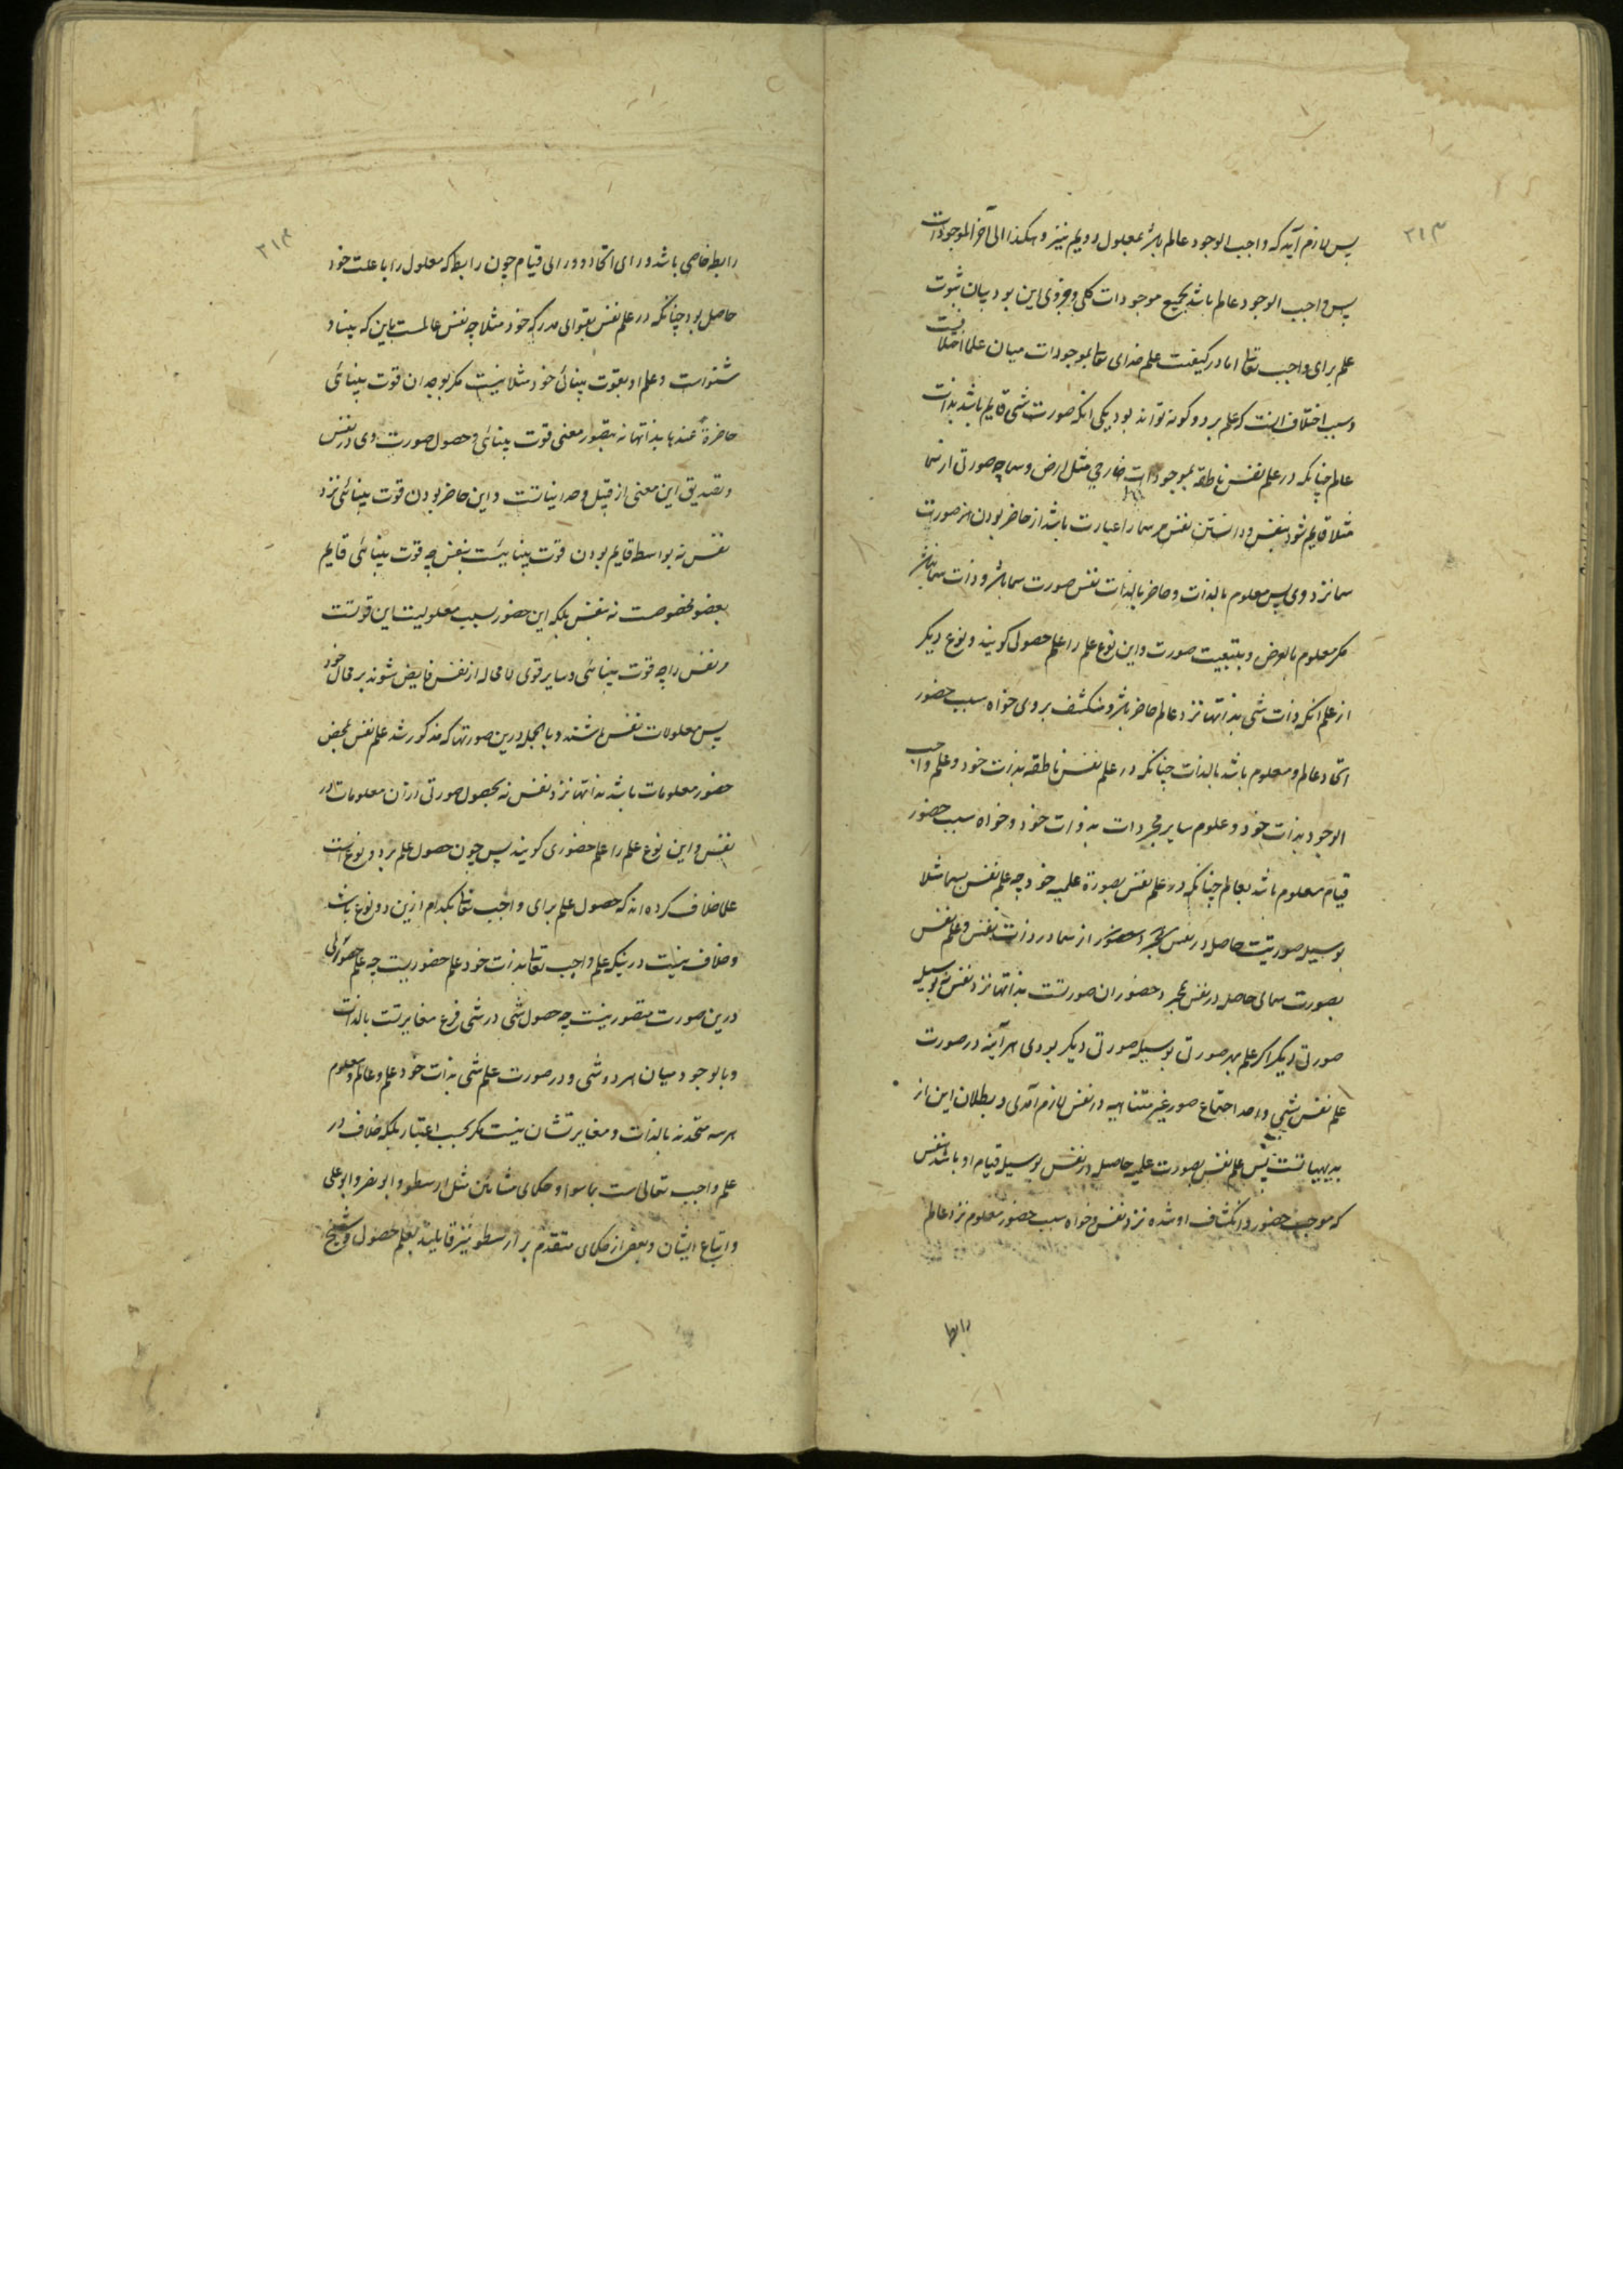 ۲۱۳
پس لازم آید که واجب الوجود عالم باشد بمعلول دویم نیز و هکذا الی آخر الموجودات
پس واجب الوجود عالم باشد بجمیع موجودات کلی و جزوی این بود بیان ثبوت
علم برای واجب تعا اما در کیفیت علم خدای تعا بموجودات میان علما اختلافست
و سبب اختلاف اینست که علم بر دو کونه تواند بود یکی انکه صورت شی قایم باشد بذات
عالم چنانکه در علم نفس ناطقه بموجودات خارجی مثل ارض و سما چه صورتی از سما
مثلا قایم شود بنفس و دانستن نفس مر سما را عبارت باشد از حاضر بودن همین صورت
سما نزد وی پس معلوم بالذات و حاضر بالذات نفس صورت سما باشد و ذات سما نباشد
مکر معلوم بالعرض و بتبعیت صورت و این نوع علم را علم حصولی کویند و نوع دیکر
از علم انکه ذات شی بذاتها نزد عالم حاضر باشد و منکشف بر وی خواه سبب حضور
اتحاد عالم و معلوم باشد بالذات چنانکه در علم نفس ناطقه بذات خود و علم واجب
الوجود بذات خود و علوم سایر مجردات بذوات خود و خواه سبب حضور
قیام معلوم باشد بعالم چنانکه در علم نفس بصورة علمیه خود چه علم نفس بسما مثلا
بوسیله صورتیت حاصل در نفس از سما در ذات نفس و علم نفس
بصورت سمای حاصل در نفس بمجرد حضور ان صورتست بذاتها نزد نفس نه بوسیله
صورتی دیکر اکر علم بهر صورتی بوسیله صورتی دیکر بودی هر آینه در صورت
علم نفس بشیی واحد اجتماع صور غیر متناهیه در نفس لازم آمدی و بطلان این از
بدیهیاتست پس علم نفس بصورت علمیه حاصله در نفس بوسیله قیام او باشد بنفس
که موجب حضور و انکشاف او شده نزد نفس و خواه سبب حضور معلوم نزد عالم
رابطه
۲۱۴
رابطه خاصی باشد ورای اتحاد و ورای قیام چون رابطه که معلول را با علت خود
حاصل بود چنانکه در علم نفس بقوای مدرکه خود مثلا چه نفس عالمست باین که بینا و
شنواست و علم او بقوت بینائی خود مثلا نیست مکر بوجدان قوت بینائی
حاضرةً عندها بذاتها نه بتصور معنی قوت بینائی و حصول صورت وی در نفس
و تصدیق این معنی از قبیل وجدانیاتست و این حاضر بودن قوت بینائی نزد
نفس نه بواسطه قایم بودن قوت بینائیست بنفس چه قوت بینائی قایم
بعضو مخصوصست نه بنفس بلکه این حضور بسبب معلولیت این قوتست
مر نفس را چه قوت بینائی و سایر قوی لا محاله از نفس فایض شوند بر محال خود
پس معلولات نفس باشند و بالجمله درین صورتها که مذکور شد علم نفس بمحض
حضور معلومات باشد بذاتها نزد نفس نه بحصول صورتی از ان معلومات در
نفس و این نوع علم را علم حضوری کویند پس چون حصول علم بر دو نوع است
علما خلاف کرده اند که حصول علم برای واجب تعا بکدام ازین دو نوع باشد
و خلاف نیست در اینکه علم واجب تعا بذات خود علم حضوریست چه علم حصولی
درین صورت متصور نیست چه حصول شی در شی فرع مغایرتست بالذات
و بالوجود میان هر دو شی و در صورت علم شی بذات خود علم و عالم و معلوم
هر سه متحدند بالذات و مغایرتشان نیست مکر بحسب اعتبار بلکه خلاف در
علم واجب تعالی است بما سوا و حکمای مشائین مثل ارسطو و ابونصر و ابوعلی
و اتباع ایشان و بعضی از حکمای متقدم بر ارسطو نیز قایلند بعلم حصولی و شیخ